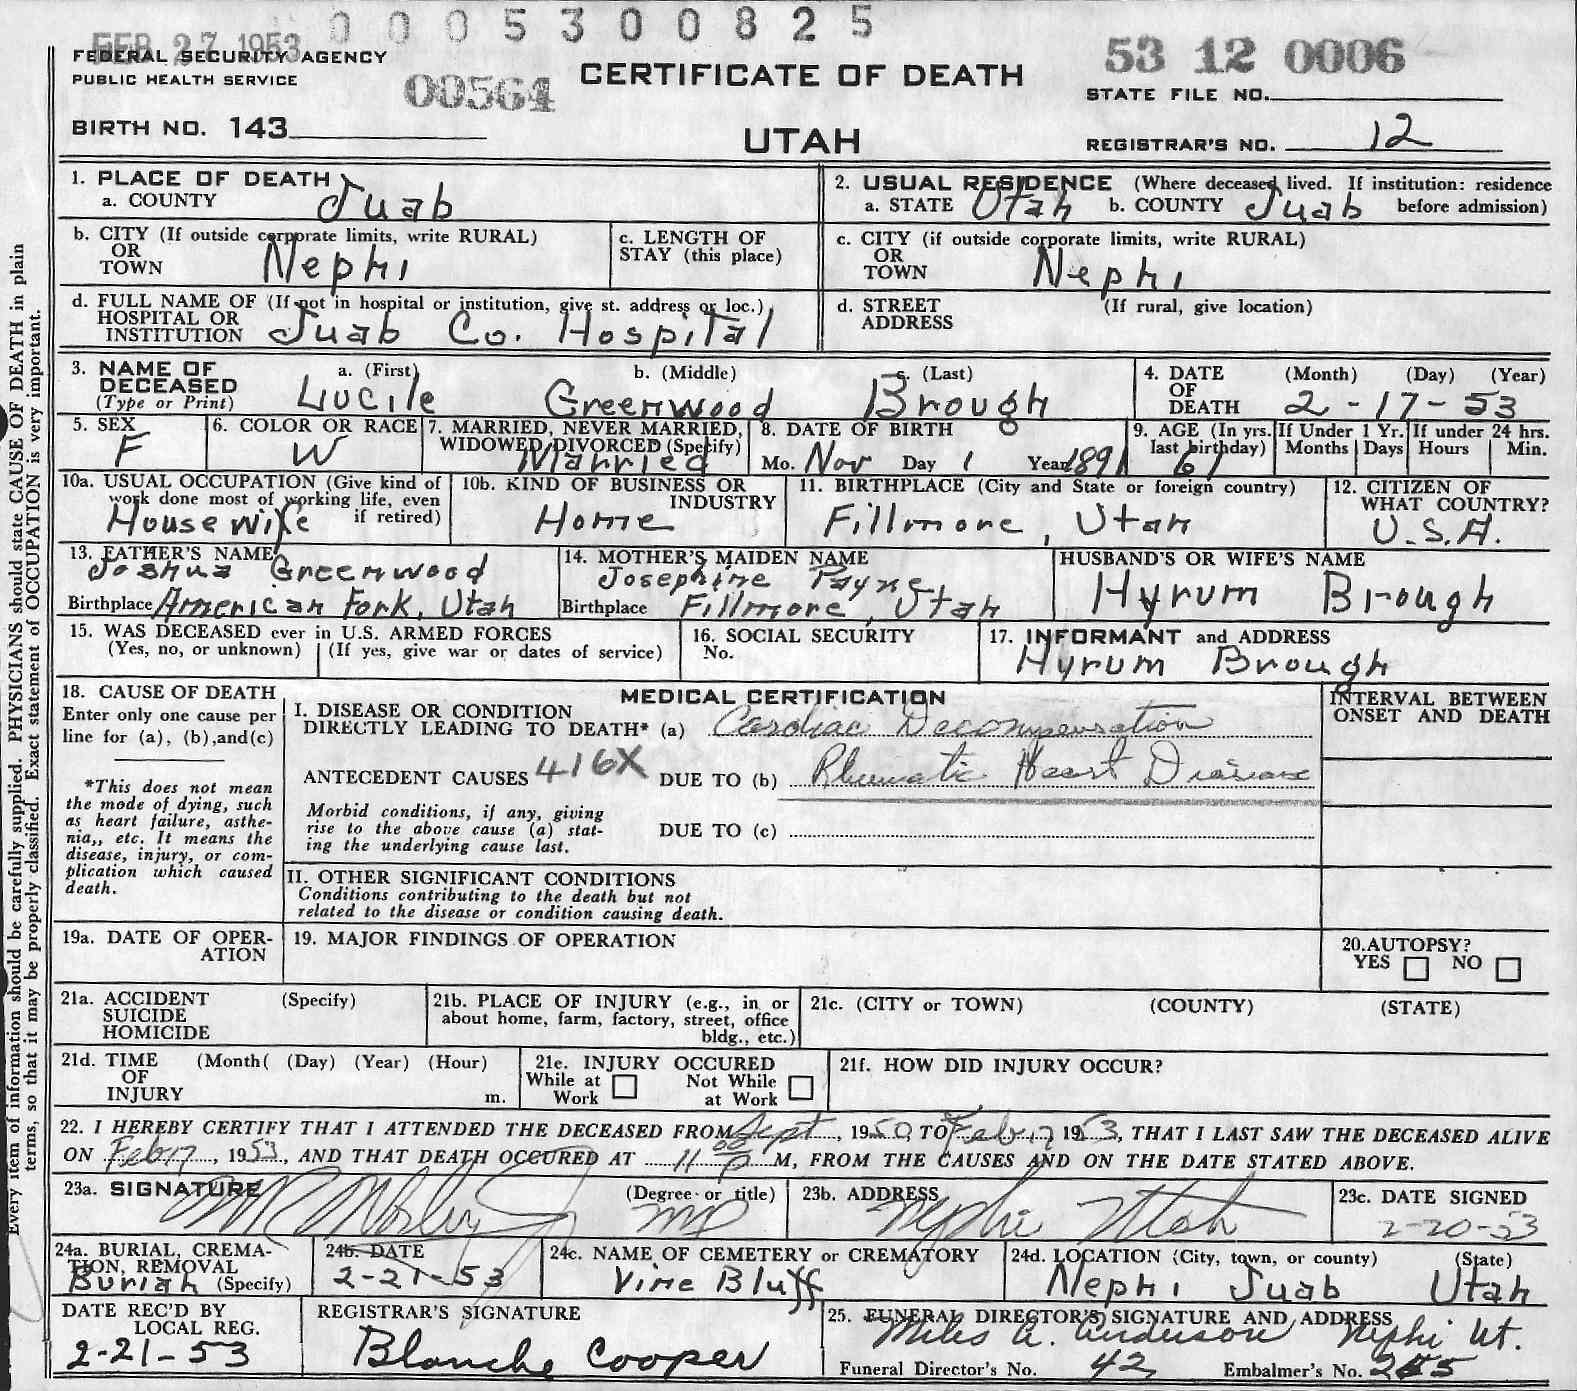 0005300825
FEB 27 1953
FEDERAL SECURITY AGENCY
PUBLIC HEALTH SERVICE
00564
CERTIFICATE OF DEATH
53 12 0006
STATE FILE NO.
BIRTH NO. 143
UTAH
REGISTRAR'S NO. 12
Every item of information should be carefully supplied. PHYSICIANS should state CAUSE OF DEATH in plain
terms, so that it may be properly classified. Exact statement of OCCUPATION is very important.
1. PLACE OF DEATH
a. COUNTY Juab
2. USUAL RESIDENCE (Where deceased lived. If institution: residence
a. STATE Utah b. COUNTY Juab before admission)
b. CITY (If outside corporate limits, write RURAL)
OR
TOWN Nephi
c. LENGTH OF
STAY (this place)
c. CITY (if outside corporate limits, write RURAL)
OR
TOWN Nephi
d. FULL NAME OF (If not in hospital or institution, give st. address or loc.)
HOSPITAL OR
INSTITUTION Juab Co. Hospital
d. STREET (If rural, give location)
ADDRESS
3. NAME OF a. (First) b. (Middle) c. (Last)
DECEASED
(Type or Print) Lucile Greenwood Brough
4. DATE (Month) (Day) (Year)
OF
DEATH 2-17-53
5. SEX
F
6. COLOR OR RACE
W
7. MARRIED, NEVER MARRIED,
WIDOWED, DIVORCED (Specify)
Married
8. DATE OF BIRTH
Mo. Nov Day 1 Year 1891
9. AGE (In yrs.
last birthday)
61
If Under 1 Yr.
Months Days
If under 24 hrs.
Hours Min.
10a. USUAL OCCUPATION (Give kind of
work done most of working life, even
if retired)
Housewife
10b. KIND OF BUSINESS OR
INDUSTRY
Home
11. BIRTHPLACE (City and State or foreign country)
Fillmore, Utah
12. CITIZEN OF
WHAT COUNTRY?
U.S.A.
13. FATHER'S NAME
Joshua Greenwood
Birthplace American Fork, Utah
14. MOTHER'S MAIDEN NAME
Josephine Payne
Birthplace Fillmore, Utah
HUSBAND'S OR WIFE'S NAME
Hyrum Brough
15. WAS DECEASED ever in U.S. ARMED FORCES
(Yes, no, or unknown) (If yes, give war or dates of service)
16. SOCIAL SECURITY
No.
17. INFORMANT and ADDRESS
Hyrum Brough
18. CAUSE OF DEATH
Enter only one cause per
line for (a), (b),and(c)
*This does not mean
the mode of dying, such
as heart failure, asthe-
nia,, etc. It means the
disease, injury, or com-
plication which caused
death.
MEDICAL CERTIFICATION
I. DISEASE OR CONDITION
DIRECTLY LEADING TO DEATH* (a) Cardiac Decompensation
ANTECEDENT CAUSES 416X DUE TO (b) Rheumatic Heart Disease
Morbid conditions, if any, giving
rise to the above cause (a) stat-
ing the underlying cause last.
DUE TO (c)
INTERVAL BETWEEN
ONSET AND DEATH
II. OTHER SIGNIFICANT CONDITIONS
Conditions contributing to the death but not
related to the disease or condition causing death.
19a. DATE OF OPER-
ATION
19. MAJOR FINDINGS OF OPERATION
20.AUTOPSY?
YES NO
21a. ACCIDENT (Specify)
SUICIDE
HOMICIDE
21b. PLACE OF INJURY (e.g., in or
about home, farm, factory, street, office
bldg., etc.)
21c. (CITY or TOWN) (COUNTY) (STATE)
21d. TIME (Month( (Day) (Year) (Hour)
OF
INJURY m.
21e. INJURY OCCURED
While at Not While
Work at Work
21f. HOW DID INJURY OCCUR?
22. I HEREBY CERTIFY THAT I ATTENDED THE DECEASED FROM Sept, 1950 TO Feb 17 1953, THAT I LAST SAW THE DECEASED ALIVE
ON Feb 17, 1953, AND THAT DEATH OCCURED AT 11 00 P M, FROM THE CAUSES AND ON THE DATE STATED ABOVE.
23a. SIGNATURE (Degree or title)
MD
23b. ADDRESS
Nephi Utah
23c. DATE SIGNED
2-20-53
24a. BURIAL, CREMA-
TION, REMOVAL
Burial (Specify)
24b. DATE
2-21-53
24c. NAME OF CEMETERY or CREMATORY
Vine Bluff
24d. LOCATION (City, town, or county) (State)
Nephi Juab Utah
DATE REC'D BY
LOCAL REG.
2-21-53
REGISTRAR'S SIGNATURE
Blanche Cooper
25. FUNERAL DIRECTOR'S SIGNATURE AND ADDRESS
Miles A. Anderson Nephi Ut.
Funeral Director's No. 42 Embalmer's No.